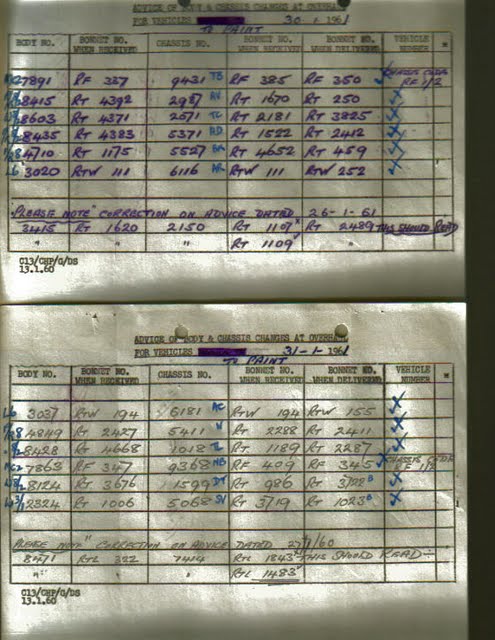 ADVICE OF BODY & CHASSIS CHANGES AT OVERHAUL
FOR VEHICLES 30-1-1961
TO PAINT
BODY NO. BONNET NO. WHEN RECEIVED CHASSIS NO. BONNET NO. WHEN RECEIVED BONNET NO. WHEN DELIVERED VEHICLE NUMBER
7891 RF 337 9431 TB RF 385 RF 350 CHASSIS CODE RF 1/2
8415 RT 4392 2987 AV RT 1670 RT 250
8603 RT 4371 2571 TC RT 2181 RT 3825
8435 RT 4383 5371 RD RT 1522 RT 2412
4710 RT 1175 5527 RT 4652 RT 459
L6 3020 RTW 111 6116 AR RTW 111 RTW 252
"PLEASE NOTE" CORRECTION ON ADVICE DATED 26-1-61
3415 RT 1620 2150 RT 1107 X RT 2489 THIS SHOULD READ
" " " RT 1109 "
C13/CHP/G/DS
13.1.60
ADVICE OF BODY & CHASSIS CHANGES AT OVERHAUL
FOR VEHICLES 31-1-1961
TO PAINT
BODY NO. BONNET NO. WHEN RECEIVED CHASSIS NO. BONNET NO. WHEN RECEIVED BONNET NO. WHEN DELIVERED VEHICLE NUMBER
L6 3037 RTW 194 6181 AC RTW 194 RTW 155
4849 RT 2427 5411 RT 2288 RT 2411
8428 RT 4668 1018 TL RT 1189 RT 2287
7863 RF 347 9368 NB RF 409 RF 345 CHASSIS CODE RF 1/2
8124 RT 3676 1599 DT RT 986 RT 3728 B
2324 RT 1006 5068 SV RT 3719 RT 1023 B
"PLEASE NOTE" CORRECTION ON ADVICE DATED
8471 RTL 322 7414 RTL 1843 THIS SHOULD READ:-
" " " RTL 1483
C13/CHP/G/DS
13.1.60